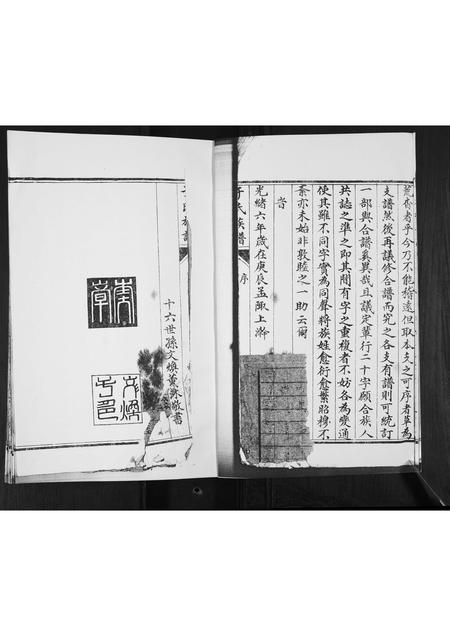 荒杳者乎今乃不能稽遠但取本支之可序者草為
支譜然後再議修合譜而究之各支有譜則可統訂
一部與合譜奚異哉且議定輩行二十字願合族人
共誌之準之即其間有字之重複者不妨各為變通
使其雖不同字實為同聲將族姓愈衍愈繁昭穆不
紊亦未始非敦睦之一助云爾
峕
光緒六年歲在庚辰孟陬上澣
于氏族譜
序
十六世孫文煥薰沐敬書
文煥